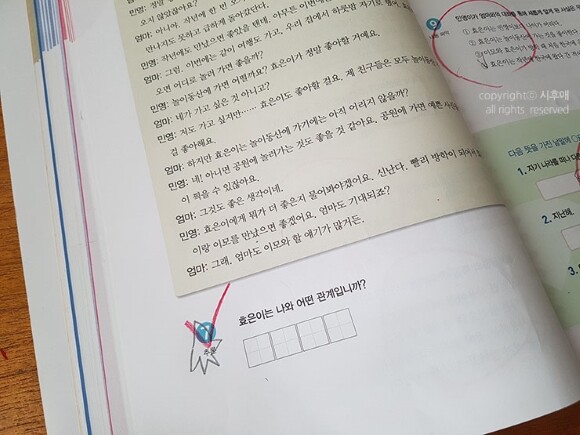 오지 않았잖아요?
엄마: 아니야. 작년에 한 번
만나지도 못하고 급하게 돌아갔단다.
민영: 작년에도 만났으면 좋았을 텐데. 아무튼 이번에
엄마: 그럼. 이번에는 같이 여행도 가고, 우리 집에서 하룻밤 자기로 했어.
오면 어디로 놀러 가면 좋을까?
민영: 놀이동산에 가면 어떨까요? 효은이가 정말 좋아할 거예요.
엄마: 네가 가고 싶은 것 아니고?
민영: 저도 가고 싶지만…… 효은이도 좋아할 걸요. 제 친구들은 모두 놀이동산
걸 좋아해요.
엄마: 하지만 효은이는 놀이동산에 가기에는 아직 어리지 않을까?
민영: 네! 아니면 공원에 놀러가는 것도 좋을 것 같아요. 공원에 가면 예쁜 사진
이 찍을 수 있잖아요.
엄마: 그것도 좋은 생각이네.
민영: 효은이에게 뭐가 더 좋은지 물어봐야겠어요. 신난다. 빨리 방학이 되어서
이랑 이모를 만났으면 좋겠어요. 엄마도 기대되죠?
엄마: 그래. 엄마도 이모와 할 얘기가 많거든.
효은이는 나와 어떤 관계입니까?
추론
9
copyrightⓒ 시후애
all rights reserved
다음 뜻을 가진 낱말을
1. 자기 나라를 떠나
2. 지난해.
3.